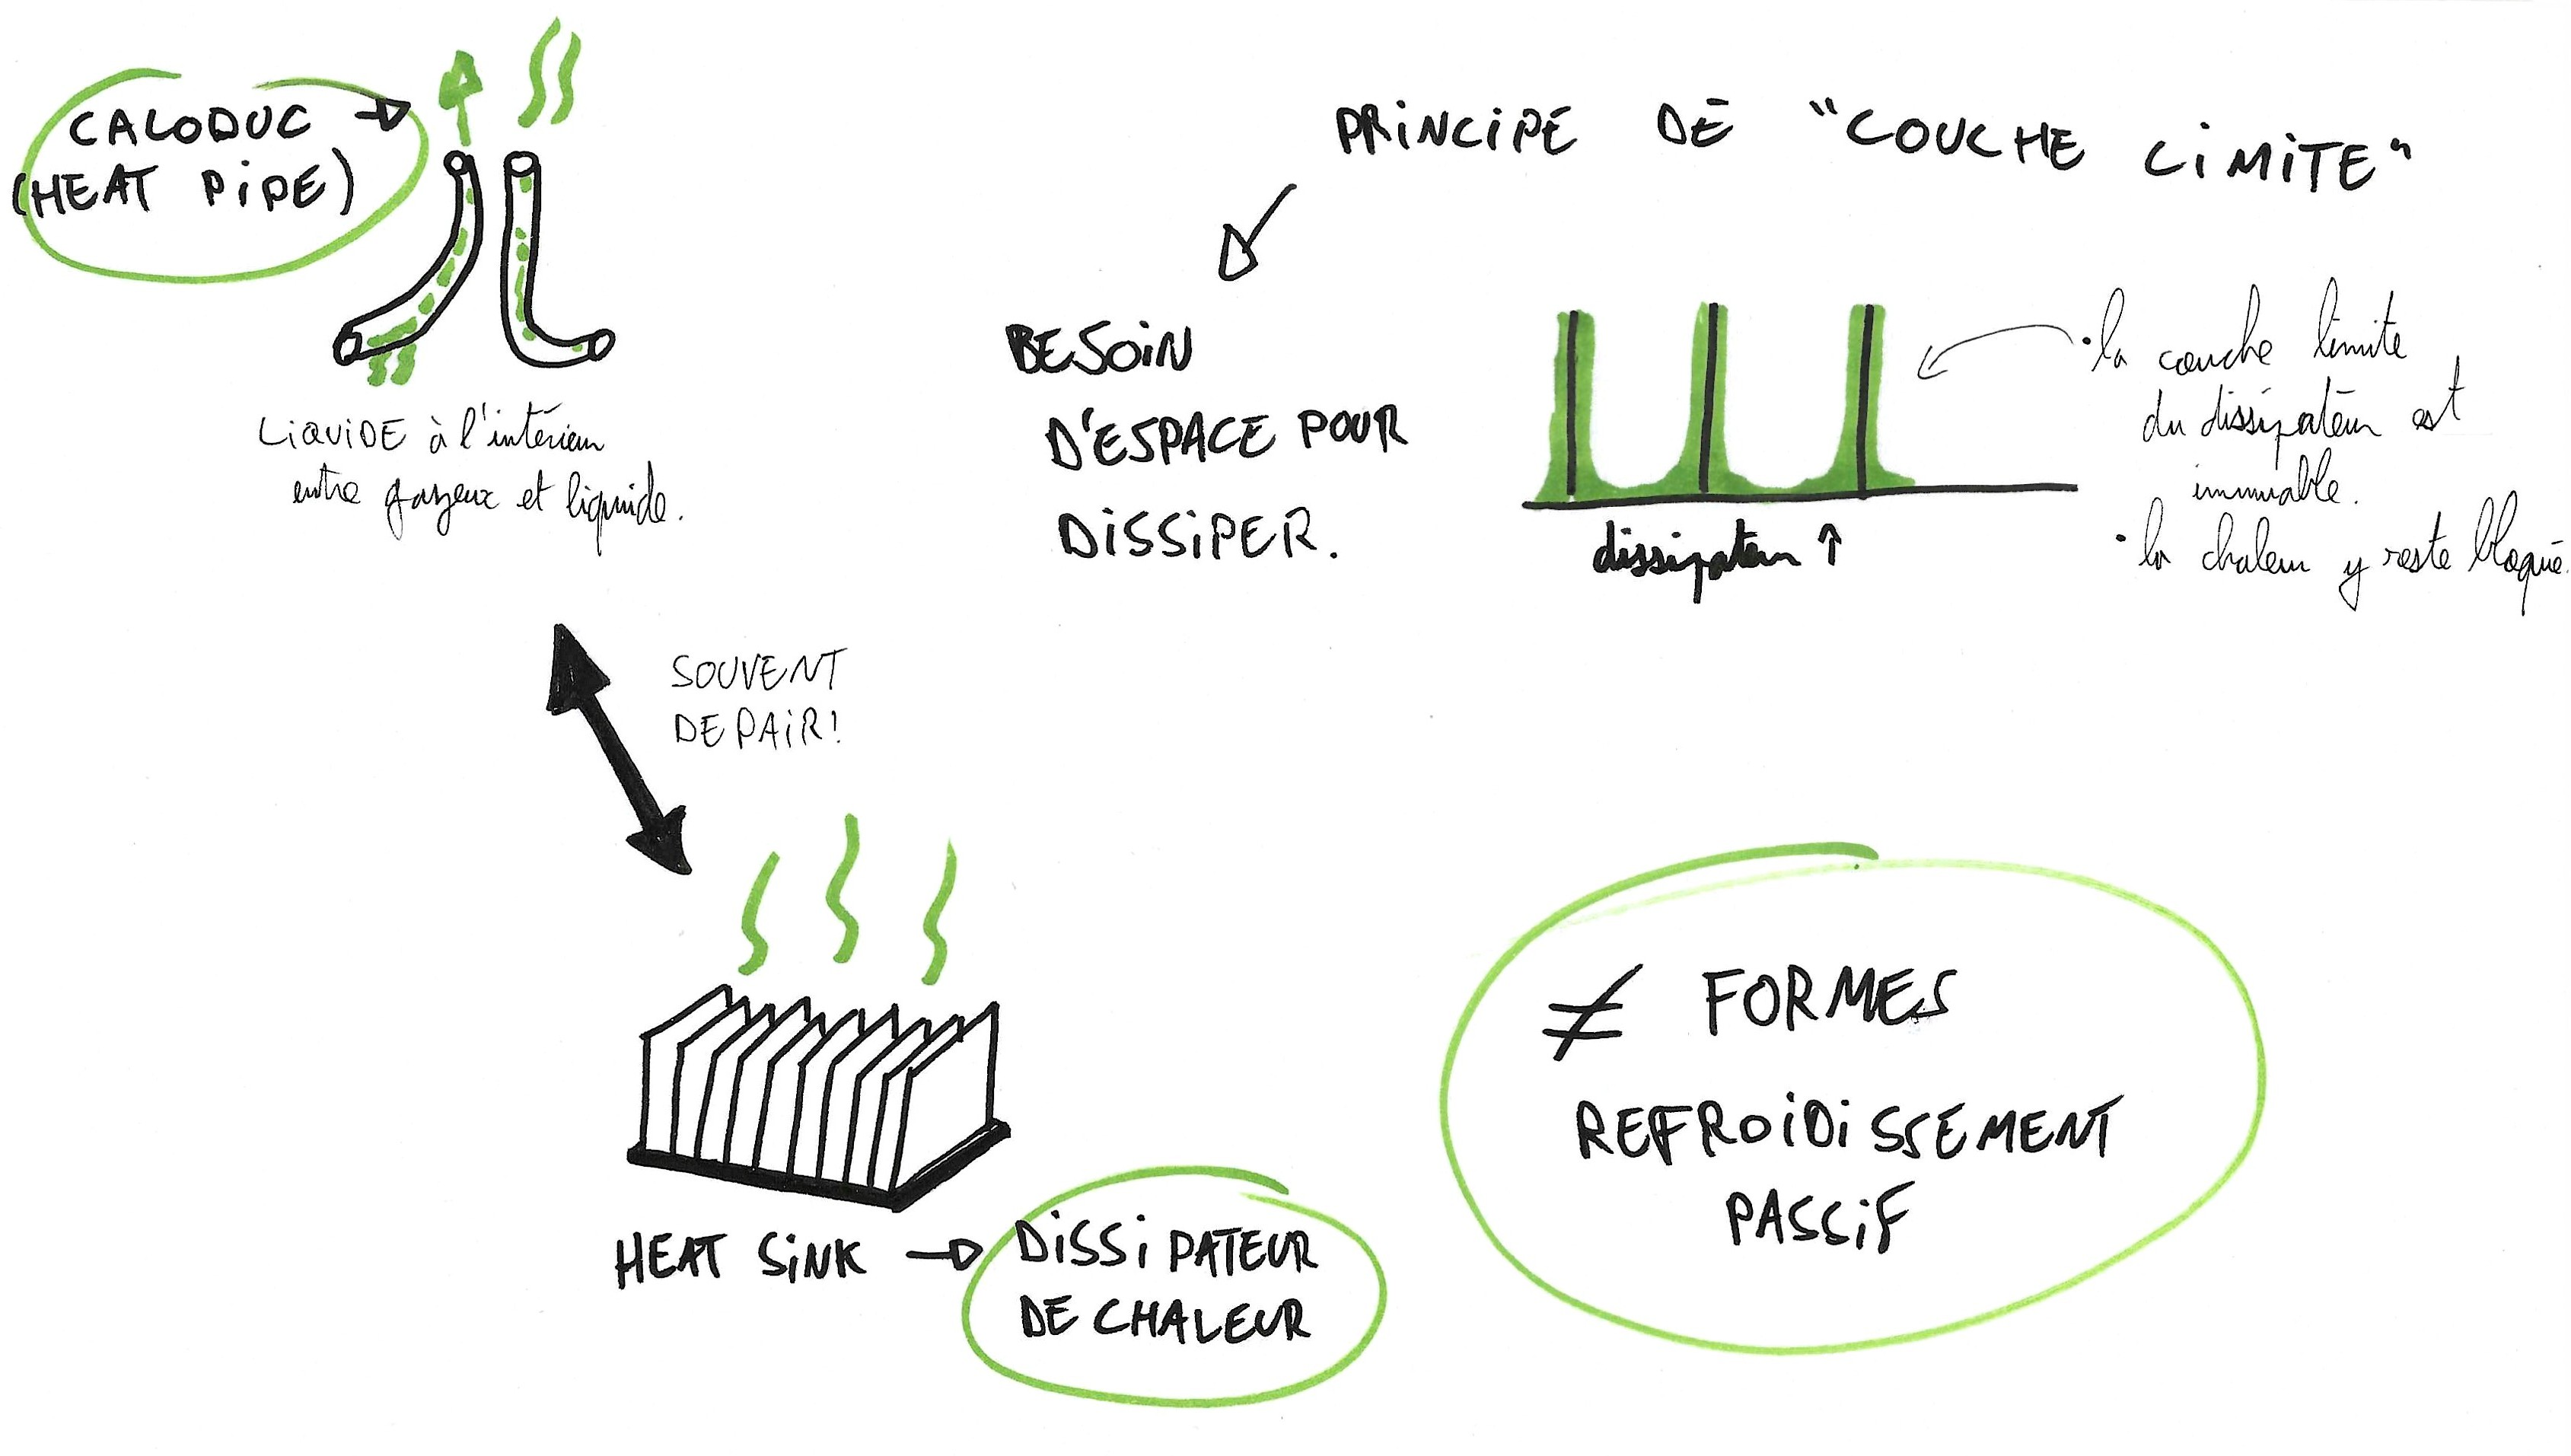 CALODUC →
(HEAT PIPE)
LIQUIDE à l'intérieur
entre gazeux et liquide.
PRINCIPE DE "COUCHE LIMITE"
BESOIN
D'ESPACE POUR
DISSIPER.
dissipateur ↑
• la couche limite
du dissipateur est
immuable.
• la chaleur y reste bloquée.
SOUVENT
DE PAIR!
HEAT SINK → DISSIPATEUR
DE CHALEUR
≠ FORMES
REFROIDISSEMENT
PASSIF